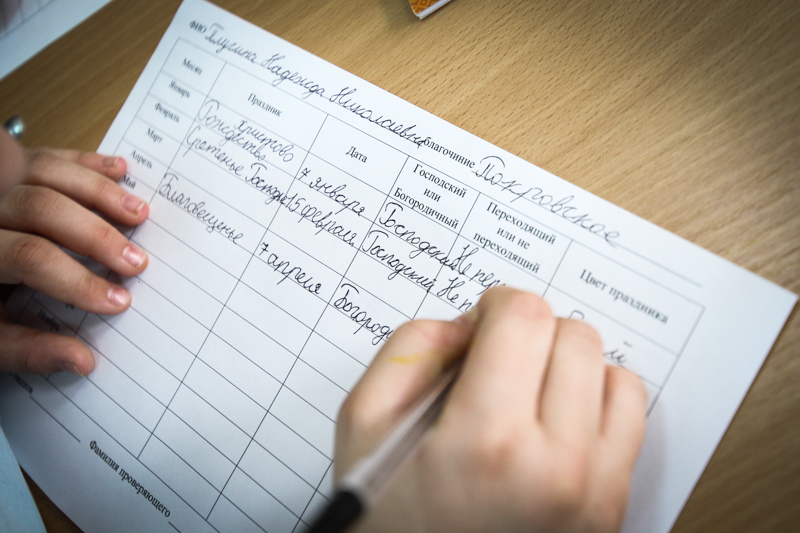 ФИО Плугина Надежда Николаевна благочиние Покровское
Месяц Праздник Дата Господский или Богородичный Переходящий или не переходящий Цвет праздника
Январь Рождество Христово 7 января Господский Не
Февраль Сретенье 15 февраля Господский Не
Март
Апрель Благовещенье 7 апреля
Фамилия проверяющего